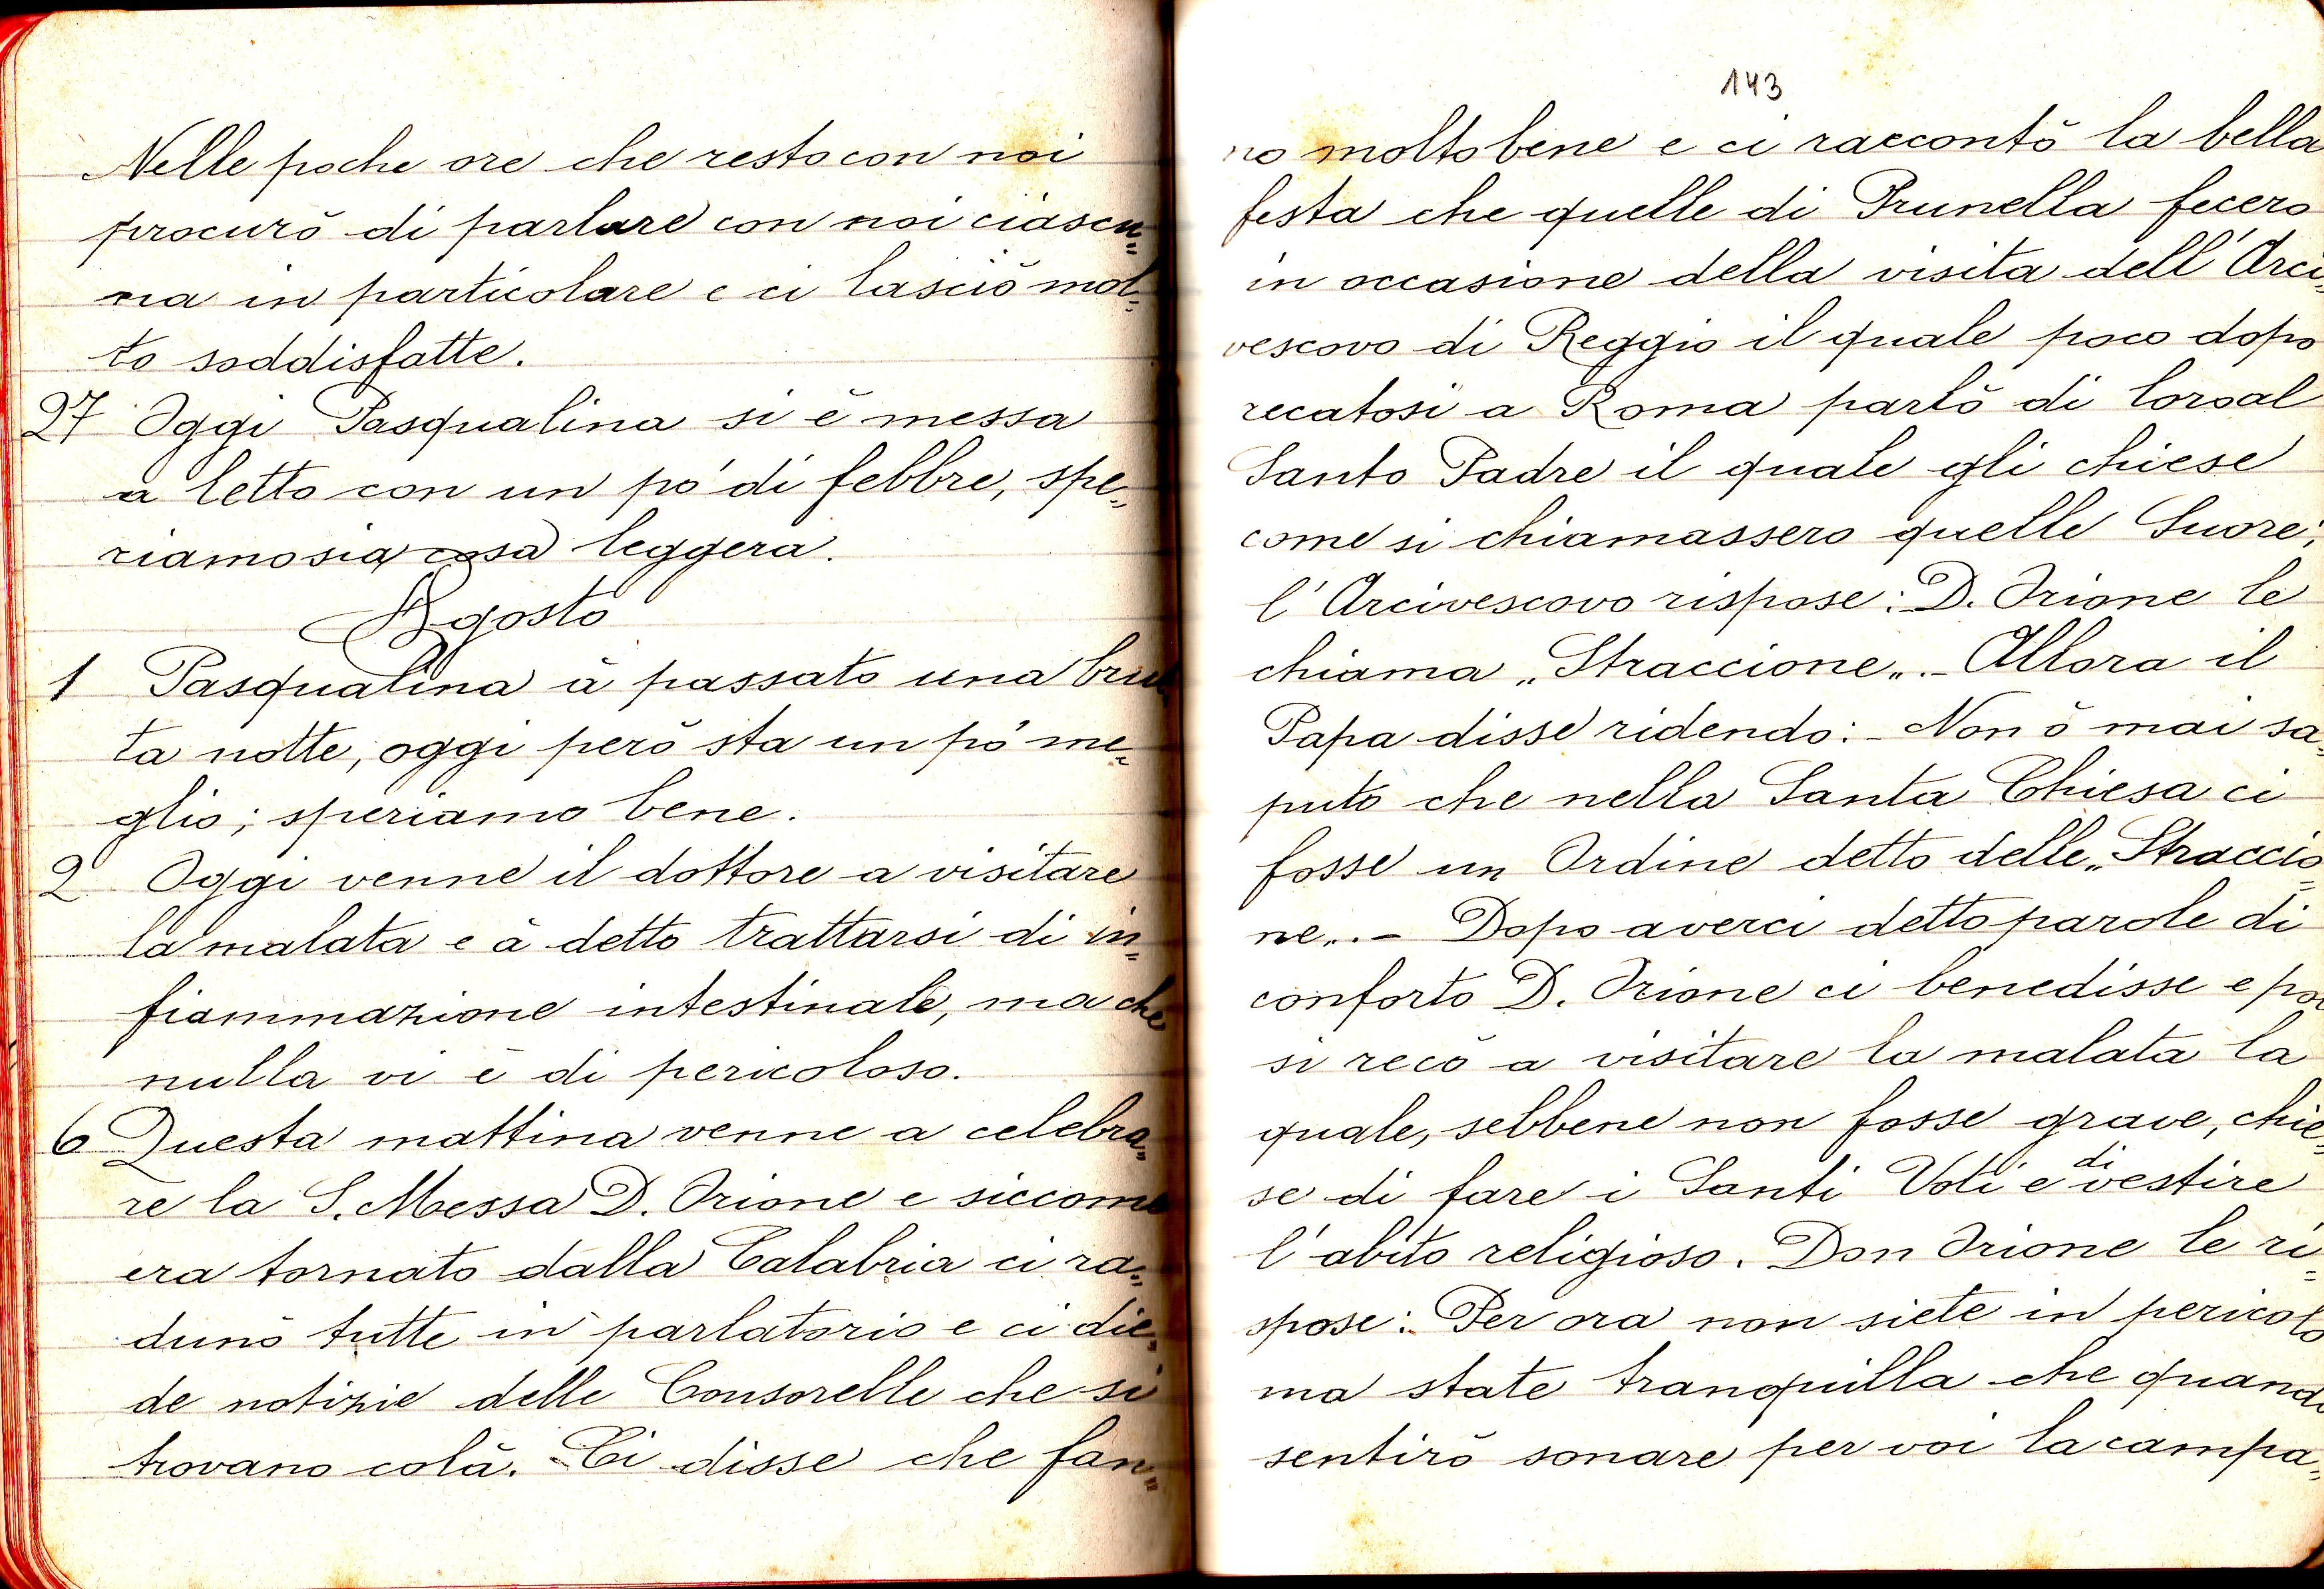 Nelle poche ore che resto con noi
procurò di parlare con noi ciascu=
na in particolare e ci lasciò mol=
to soddisfatte.
27 Oggi Pasqualina si è messa
a letto con un pò di febbre, spe=
riamo sia cosa leggera.
Agosto
1 Pasqualina à passato una brut
ta notte, oggi però sta un pò me=
glio; speriamo bene.
2 Oggi venne il dottore a visitare
la malata e à detto trattarsi di in=
fiammazione intestinale, ma che
nulla vi è di pericoloso.
6 Questa mattina venne a celebra=
re la S. Messa D. Orione e siccome
era tornato dalla Calabria ci ra=
dunò tutte in parlatorio e ci die=
de notizie delle Consorelle che si
trovano colà. Ci disse che fan=
143
no molto bene e ci raccontò la bella
festa che quelle di Prunella fecero
in occasione della visita dell'Arci=
vescovo di Reggio il quale poco dopo
recatosi a Roma parlò di loro al
Santo Padre il quale gli chiese
come si chiamassero quelle Suore;
l'Arcivescovo rispose: D. Orione le
chiama „Straccione„.- Allora il
Papa disse ridendo:- Non ò mai sa=
puto che nella Santa Chiesa ci
fosse un Ordine detto delle „Straccio=
ne„.- Dopo averci detto parole di
conforto D. Orione ci benedisse e poi
si recò a visitare la malata la
quale, sebbene non fosse grave, chie=
se di fare i Santi Voti e di vestire
l'abito religioso. Don Orione le ri=
spose:. Per ora non siete in pericolo
ma state tranquilla che quando
sentirò sonare per voi la campa=